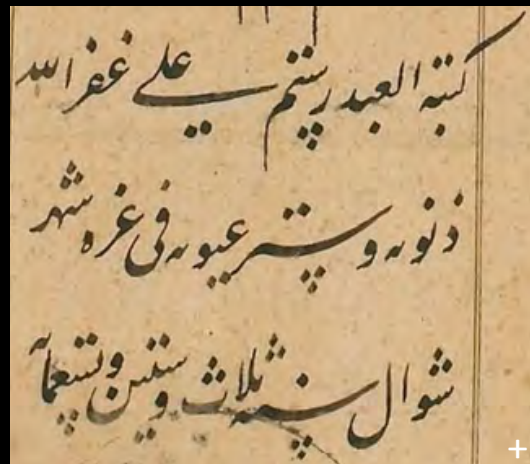 كتبه العبد رستم علي غفر الله
ذنوبه و ستر عيوبه في غره شهر
شوال سنه ثلاث و ستين و تسعمآ